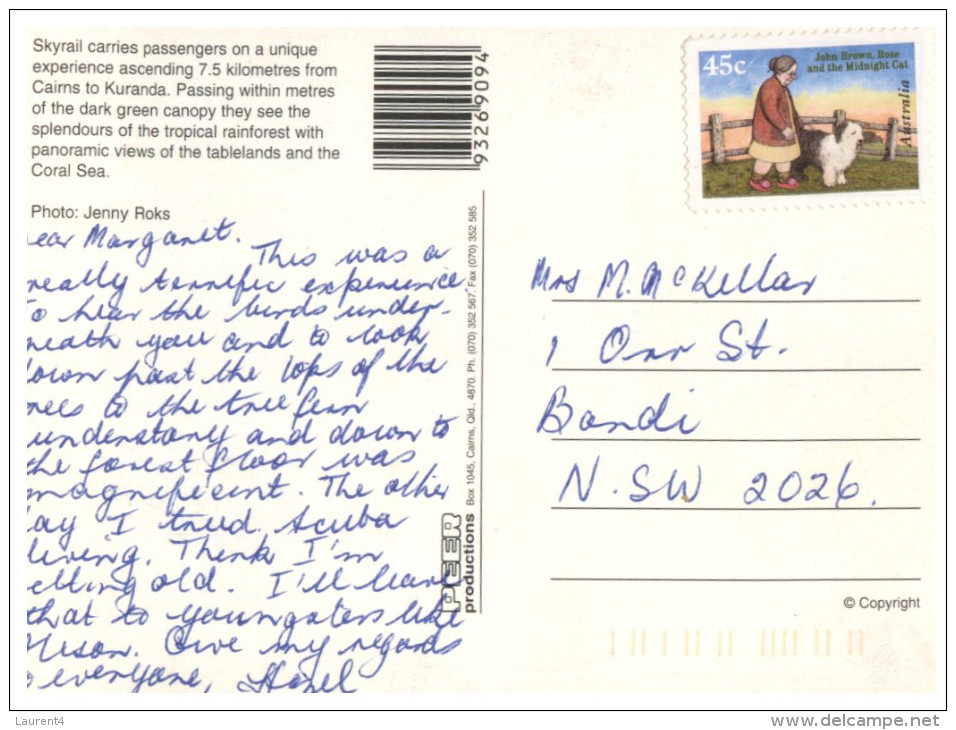 Skyrail carries passengers on a unique
experience ascending 7.5 kilometres from
Cairns to Kuranda. Passing within metres
of the dark green canopy they see the
splendours of the tropical rainforest with
panoramic views of the tablelands and the
Coral Sea.
Photo: Jenny Roks
93269094
45c
John Brown, Rose
and the Midnight Cat
Australia
ear Margaret.
This was a
really terrific experience
o hear the birds under-
neath you and to look
down past the tops of the
rees to the tree fern
understory and down to
the forest floor was
magnificent. The other
ay I tried scuba
diving. Think I'm
etting old. I'll leave
that to youngsters like
Give my regards
o everyone, Hazel
PEER
productions Box 1045, Cairns, Qld., 4870. Ph. (070) 352 567. Fax (070) 352 585
Mrs M. McKellar
1 Orr St.
Bondi
N.SW 2026.
© Copyright
Laurent4
www.delcampe.net